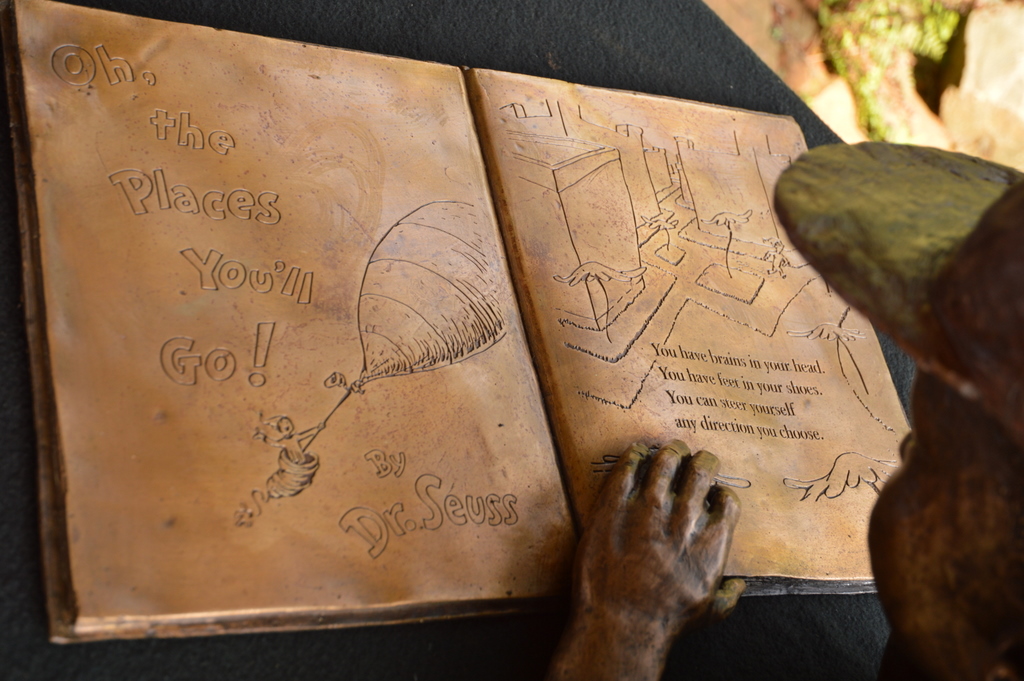 Oh,
the
Places
You'll
Go!
By
Dr. Seuss
You have brains in your head.
You have feet in your shoes.
You can steer yourself
any direction you choose.